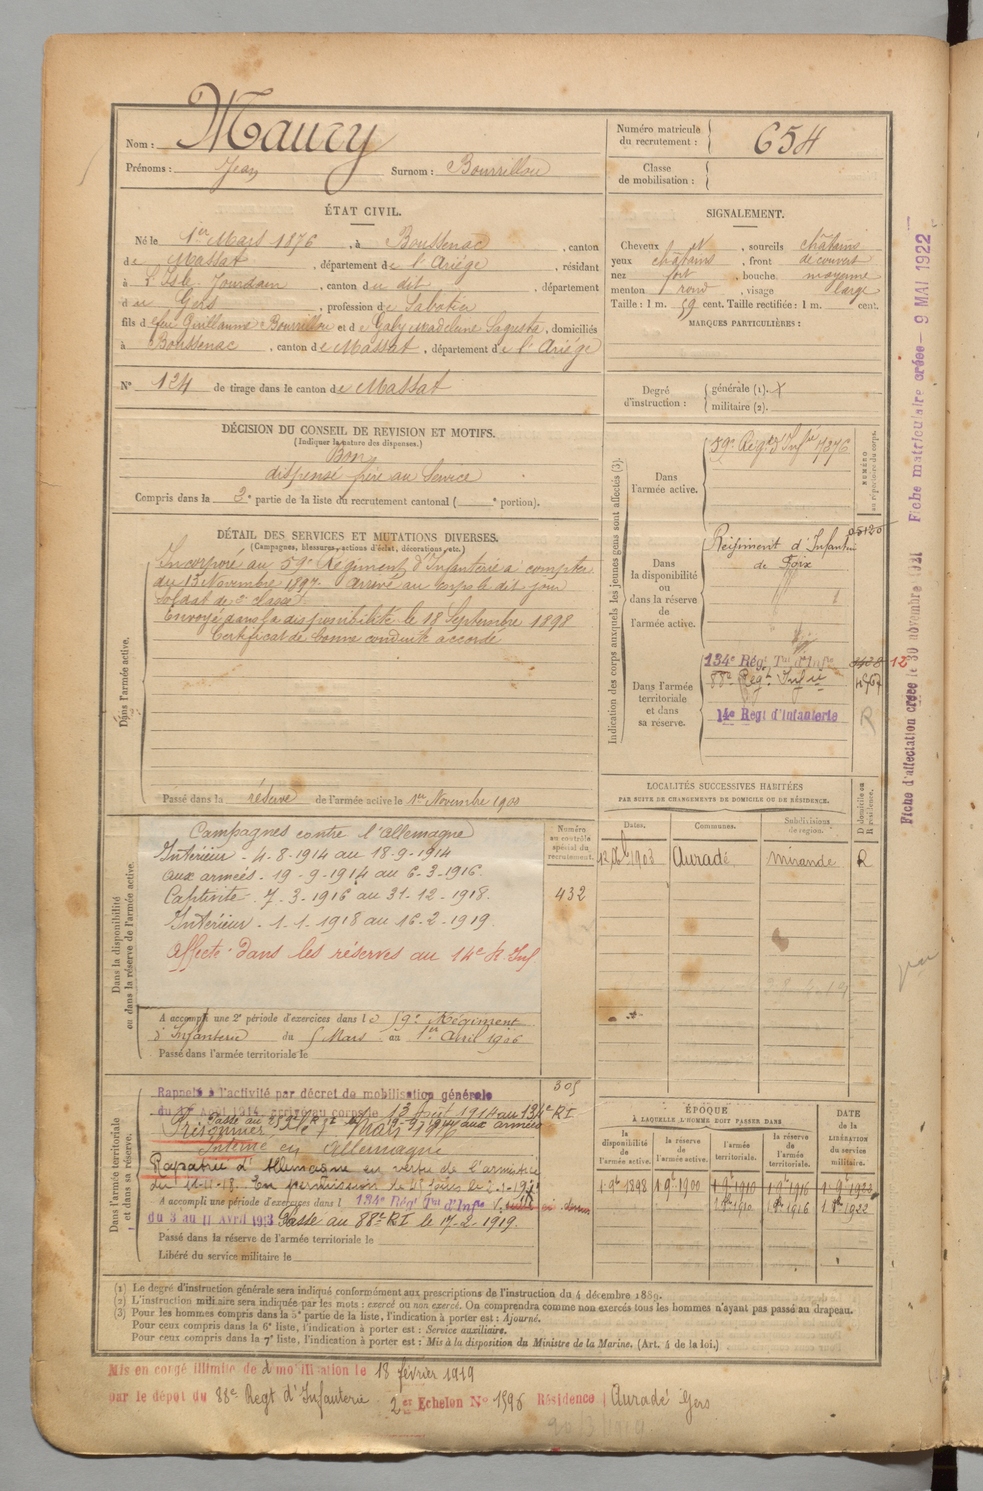 Nom : Maury
Prénoms : Jean Surnom : Bourrillou
Numéro matricule du recrutement : 654
Classe de mobilisation :
ÉTAT CIVIL.
Né le 1er Mars 1876, à Boussenac, canton
de Massat, département de l'Ariége, résidant
à L'Isle-Jourdain, canton du dit, département
du Gers, profession de Sabotier
fils d feu Guillaume Bourrillou et de Galy Madeleine Sagusta, domiciliés
à Boussenac, canton de Massat, département de l'Ariége
N° 124 de tirage dans le canton de Massat
SIGNALEMENT.
Cheveux et, sourcils châtains
yeux châtains, front découvert
nez fort, bouche moyenne
menton rond, visage large
Taille : 1 m. 59 cent. Taille rectifiée : 1 m. cent.
MARQUES PARTICULIÈRES :
Degré d'instruction : générale (1). militaire (2).
DÉCISION DU CONSEIL DE REVISION ET MOTIFS.
(Indiquer la nature des dispenses.)
Bon
dispensé frère au Service
Compris dans la 2e partie de la liste du recrutement cantonal ( e portion).
DÉTAIL DES SERVICES ET MUTATIONS DIVERSES.
(Campagnes, blessures, actions d'éclat, décorations, etc.)
Dans l'armée active.
Incorporé au 59e Régiment d'Infanterie à compter
du 13 Novembre 1897. Arrivé au corps le dit jour
Soldat de 2e classe
Envoyé dans la disponibilité le 18 Septembre 1898
Certificat de bonne conduite accordé
Passé dans la réserve de l'armée active le 1er Novembre 1900
Indication des corps auxquels les jeunes gens sont affectés (3).
NUMÉRO au répertoire du corps.
Dans l'armée active.
59e Régt d'Infie 7876
Dans la disponibilité ou dans la réserve de l'armée active.
Régiment d'Infanterie
de Foix
Dans l'armée territoriale et dans sa réserve.
134e Régt Tal d'Infie 12
88e Régt Infie
14e Régt d'Infanterie R
Fiche d'affectation créée le 30 novembre 1921 Fiche matriculaire créée 9 MAI 1922
Dans la disponibilité ou dans la réserve de l'armée active.
Numéro au contrôle spécial du recrutement.
432
Campagnes contre l'Allemagne
Intérieur - 4-8-1914 au 18-9-1914
aux armées - 19-9-1914 au 6-3-1916.
Captivité - 7-3-1916 au 31-12-1918.
Intérieur - 1-1-1918 au 16-2-1919.
Affecté dans les réserves au 14e R. Inf
A accompli une 2e période d'exercices dans le 59e Régiment
d'Infanterie du 5 Mars au 1er Avril 1906
Passé dans l'armée territoriale le
LOCALITÉS SUCCESSIVES HABITÉES
PAR SUITE DE CHANGEMENTS DE DOMICILE OU DE RÉSIDENCE.
Dates. Communes. Subdivisions de région. D domicile ou R résidence.
1903 Auradé Mirande R
Dans l'armée territoriale et dans sa réserve.
305
Rappelé à l'activité par décret de mobilisation générale
du 1er Août 1914 arrivé au corps le 13 Août 1914 au 134e RI
Prisonnier le 7 Mars 1916
Interné en Allemagne
Rapatrié d'Allemagne en vertu de l'armistice
du 11-11-18. En permission de
A accompli une période d'exercices dans l 134e Régt Tal d'Infie
du 3 au 11 Avril 1913 Passé au 88e RI le 17-2-1919.
Passé dans la réserve de l'armée territoriale le
Libéré du service militaire le
ÉPOQUE
À LAQUELLE L'HOMME DOIT PASSER DANS
DATE de la LIBÉRATION du service militaire.
la disponibilité de l'armée active. la réserve de l'armée active. l'armée territoriale. la réserve de l'armée territoriale.
1 9bre 1898 1 9bre 1900 1 9bre 1910 1 9bre 1916 1 9bre 1922
1 8bre 1910 1 8bre 1916 1 8bre 1922
(1) Le degré d'instruction générale sera indiqué conformément aux prescriptions de l'instruction du 4 décembre 1889.
(2) L'instruction militaire sera indiquée par les mots : exercé ou non exercé. On comprendra comme non exercés tous les hommes n'ayant pas passé au drapeau.
(3) Pour les hommes compris dans la 5e partie de la liste, l'indication à porter est : Ajourné.
Pour ceux compris dans la 6e liste, l'indication à porter est : Service auxiliaire.
Pour ceux compris dans la 7e liste, l'indication à porter est : Mis à la disposition du Ministre de la Marine. (Art. 4 de la loi.)
Mis en congé illimité de démobilisation le 18 février 1919
par le dépôt du 88e Regt d'Infanterie 2er Echelon No 1596 Résidence Auradé Gers